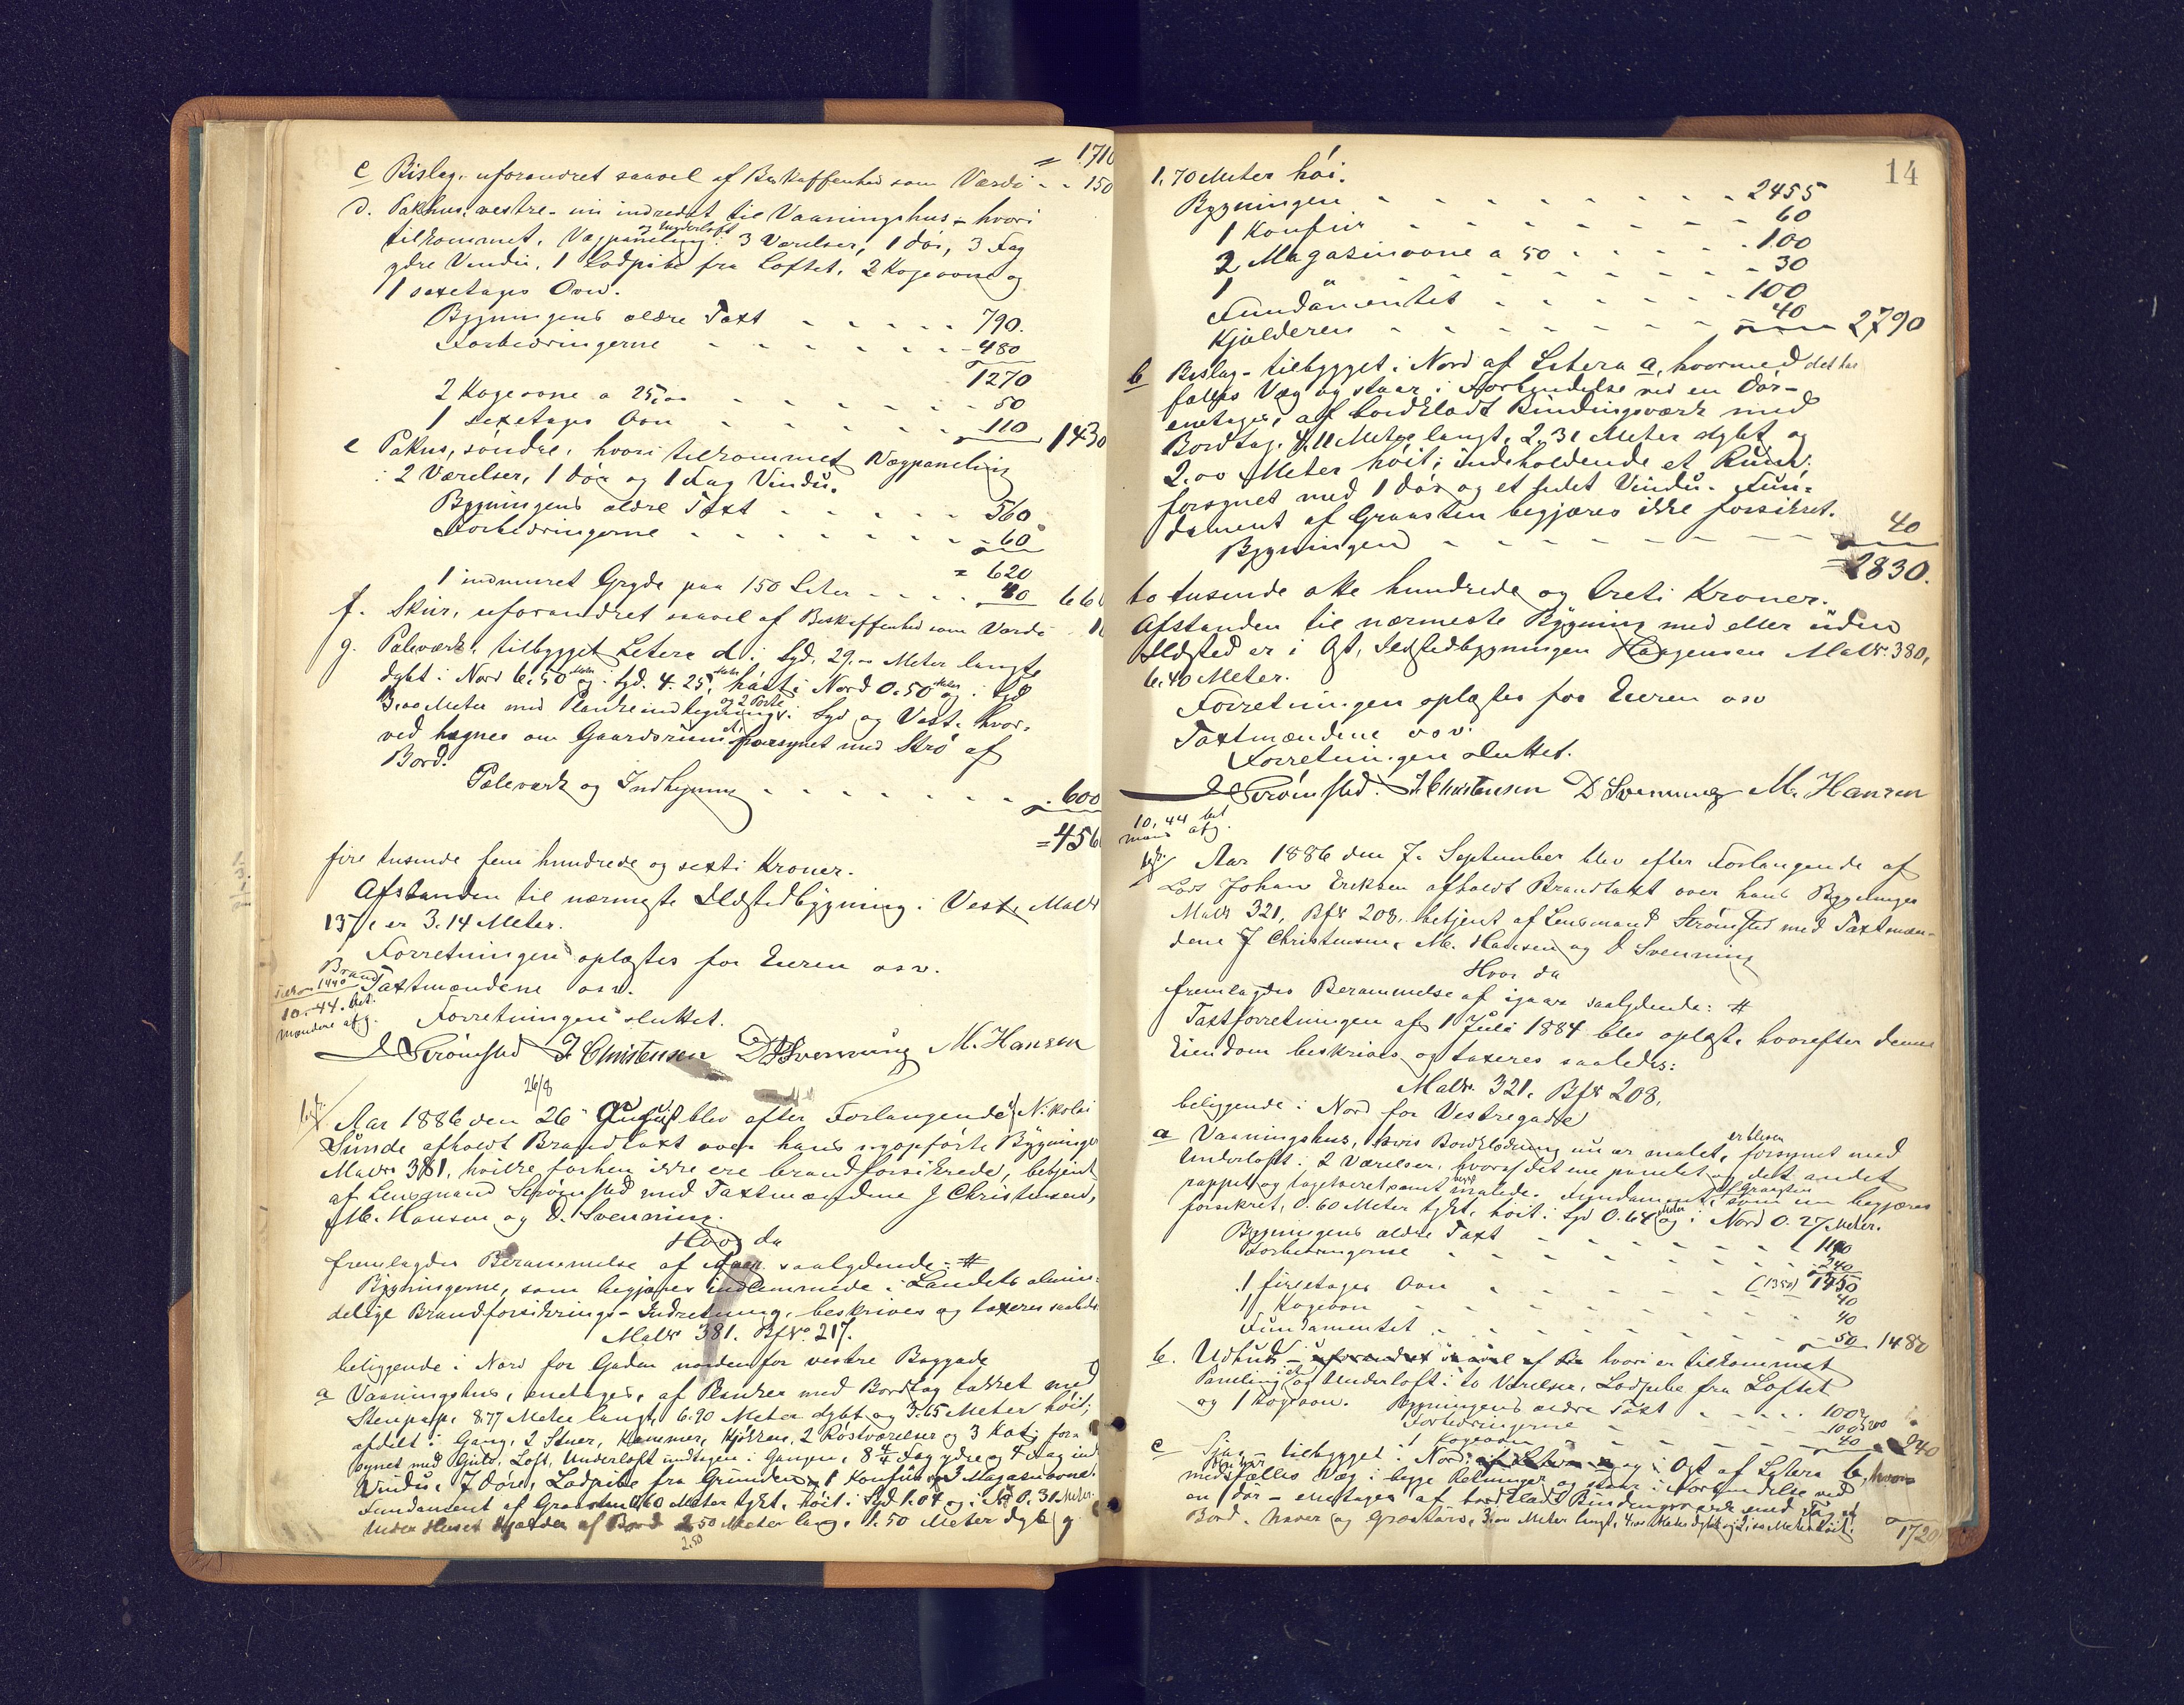 = 1710
c Bislag. uforandret saavel af Beskaffenhed som Værdi - - 150
d. Pakhus, vestre - nu indredet til Vaaningshus - hvori
tilkommet, Vægpaneling og Underloft i 3 Værelser, 1 Dør, 3 Fag
ydre Vindu, 1 Lodpibe fra Loftet, 2 Kogeovne og
1 sexetages Ovn.
Bygningens ældre Taxt - - - - - 790.
Forbedringerne - - - - - - 480
1270
2 Kogeovne a 25,00 - - - - - - 50
1 sexetages Ovn - - - - - - 110 1430
e Pakus, søndre, hvori tilkommet Vægpaneling
i 2 Værelser, 1 Dør og 1 Fag Vindu.
Bygningens ældre Taxt - - - - - 560
Forbedringerne - - - - - - - 60
= 620
1 indmuret Gryde paa 150 Liter - - - - 40 660
f. Skur, uforandret saavel af Beskaffenhed som Værdi - 10
g. Paleværk, tilbygget Litera d i Syd, 29,00 Meter langt
dybt i Nord 6.50 Meter og i Syd. 4.25 Meter, høit i Nord 0.50 Meter og i Syd
3,00 Meter med Plankeindhegning og 2 Porte i Syd og Vest. hvor-
ved hegnes om Gaardsrum forsynet med Strö af
Bord.
Paleværk og Indhegning - - - - - - - - 600
= 456
fire tusinde fem hundrede og sexti Kroner.
Afstanden til nærmeste Ildstedbygning i Vest, MatNr
137/1 er 3.14 Meter.
Forretningen oplæstes for Eieren osv.
Taxtmændene osv.
Forretningen sluttet.
10.44. bet.
mændene afg.
Strømsted J. Christensen D Svenning M. Hansen
26/8
Aar 1886 den 26 August blev efter Forlangende af Nikolai
Sunde afholdt Brandtaxt over hans nyopførte Bygninger
MatNr 381, hvilke forhen ikke ere brandforsikrede, betjent
af Lensmand Strømsted med Taxtmændene J Christensen,
M. Hansen og D. Svenning.
Hvor da
fremlagdes Berammelse af saalydende: #
Bygningerne, som begjæres indlemmede i Landets almin-
delige Brandforsikrings-Indretning, beskrives og taxeres saaledes
MatNr 381. BfNo 217.
beliggende i Nord for Gaden nordenfor vestre Baggade
a Vaaningshus, enetages, af Planker med Bordtag takket med
Stenpap, 8.77 Meter langt, 6.90 Meter dybt og 3.65 Meter höit;
afdelt i Gang, 2 Stuer, Kammer, Kjøkken, 2 Röstværelser og 3 Kot; for-
synet med Gulv, Loft, Underloft undtagen i Gangen, 8 4/4 Fag ydre og 4 Fag ind
Vindu, 7 Döre, Lodpibe fra Grunden, 1 Komfur og 3 Magasinovne.
Fundament af Graasten 0,60 Meter tykt, höit i Syd 1.04 og i Nd 0.31 Meter.
Under Huset Kjælder af Bord 2.50 Meter lang, 1.50 Meter dyb og
2.50
14
1.70 Meter höi.
Bygningen - - - - - - - - 2455
1 Komfur - - - - - - - 60
2 Magasinovne a 50 - - - - - 100
1 " - - - - - - - 30
Fundamentet - - - - - - 100
Kjælderen - - - - - - - 40 2790
b Bislag - tilbygget i Nord af Litera a, hvormed det har
fælles Væg og staar i Forbindelse ved en Dör -
enetages, af bordklædt Bindingsværk med
Bordtag. 4.11 Meter langt, 2.31 Meter dybt og
2.00 Meter höit; indeholdende et Rum.
forsynet med 1 Dör og et lidet Vindu. Fun-
dament af Graasten begjæres ikke forsikret.
Bygningen - - - - - - - - 40
= 2830.
to tusinde otte hundrede og treti Kroner.
Afstanden til nærmeste Bygning med eller uden
Ildsted er i Øst, Ildstedbygningen Haagensen MatNr. 380,
6.40 Meter.
Forretningen oplæstes for Eieren osv
Taxtmændene osv.
Forretningen sluttet.
Strømsted. J. Christensen D Svenning M. Hansen
10,44 bet
mænd afg.
Aar 1886 den 7. September blev efter Forlangende af
Lars Johan Eriksen afholdt Brandtaxt over hans Bygninger
MatNr 321, BfNr 208, betjent af Lensmand Strømsted med Taxtmæn-
dene J Christensen, M. Hansen og D Svenning
Hvor da
fremlagdes Berammelse af igaar saalydende: #
Taxtforretningen af 1 Juli 1884 blev oplæst, hvorefter denne
Eiendom beskrives og taxeres saaledes:
MatNr. 321. BfNr 208.
beliggende i Nord for Vestregade
a Vaaningshus, hvis Bordklædning nu er malet, er bleven forsynet med
Underloft i 2 Værelser, hvoraf det ene panelet og det andet
pappet og tapetseret samt malede. Fundament, af Graasten som nu begjæres
forsikret, 0.60 Meter tykt, höit i Syd 0.64 Meter og i Nord 0.27 Meter.
Bygningens ældre Taxt - - - - - - 1110
Forbedringerne - - - - - - - 240
1 fireetages Ovn - - - - - (1350) 1350
1 Kogeovn - - - - - - - 40
40
Fundamentet - - - - - - - 50 1480
b. Udhus - uforandret saavel af Be hvori er tilkommet
Paneling og Underloft i to Værelser, Lodpibe fra Loftet
og 1 Kogeovn. Bygningens ældre Taxt - - - - - 100
Forbedringerne - - - - 100 200
1 Kogeovn - - - - - 40 240
c Sjaa - tilbygget i Nord og i Øst af Litera b, hvor-
med fælles Væg i begge Retninger og staar i Forbindelse ved
en Dör - enetages af bordklædt Bindingsværk med Tag af
Bord. Næver og Græstørv, 3,00 Meter langt, 4,00 Meter dybt og 2,00 Meter höit. 1720